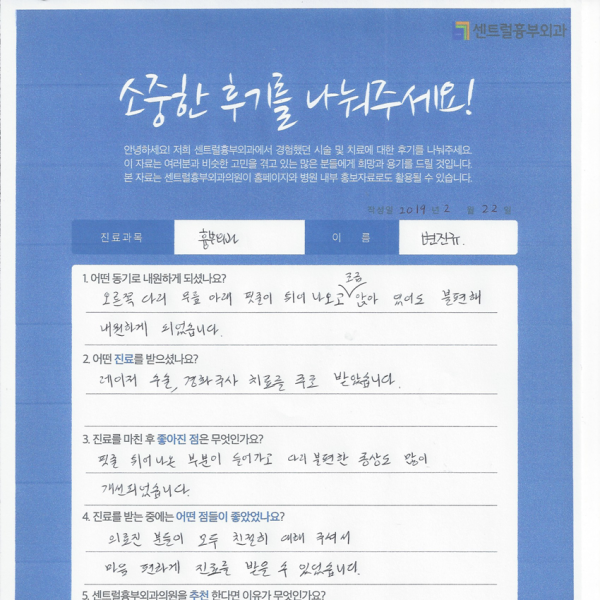 센트럴흉부외과
소중한 후기를 나눠주세요!
안녕하세요! 저희 센트럴흉부외과에서 경험했던 시술 및 치료에 대한 후기를 나눠주세요.
이 자료는 여러분과 비슷한 고민을 겪고 있는 많은 분들에게 희망과 용기를 드릴 것입니다.
본 자료는 센트럴흉부외과의원이 홈페이지와 병원 내부 홍보자료로도 활용될 수 있습니다.
작성일 2019 년 2 월 22 일
진료과목 흉부외과 이 름 변진규.
1. 어떤 동기로 내원하게 되셨나요?
조금
오른쪽 다리 무릎 아래 핏줄이 튀어 나오고 앉아 있어도 불편해
내원하게 되었습니다.
2. 어떤 진료를 받으셨나요?
레이저 수술, 경화주사 치료를 주로 받았습니다.
3. 진료를 마친 후 좋아진 점은 무엇인가요?
핏줄 튀어나온 부분이 들어가고 다리 불편한 증상도 많이
개선되었습니다.
4. 진료를 받는 중에는 어떤 점들이 좋았었나요?
의료진 분들이 모두 친절히 대해 주셔서
마음 편하게 진료를 받을 수 있었습니다.
5. 센트럴흉부외과의원을 추천 한다면 이유가 무엇인가요?